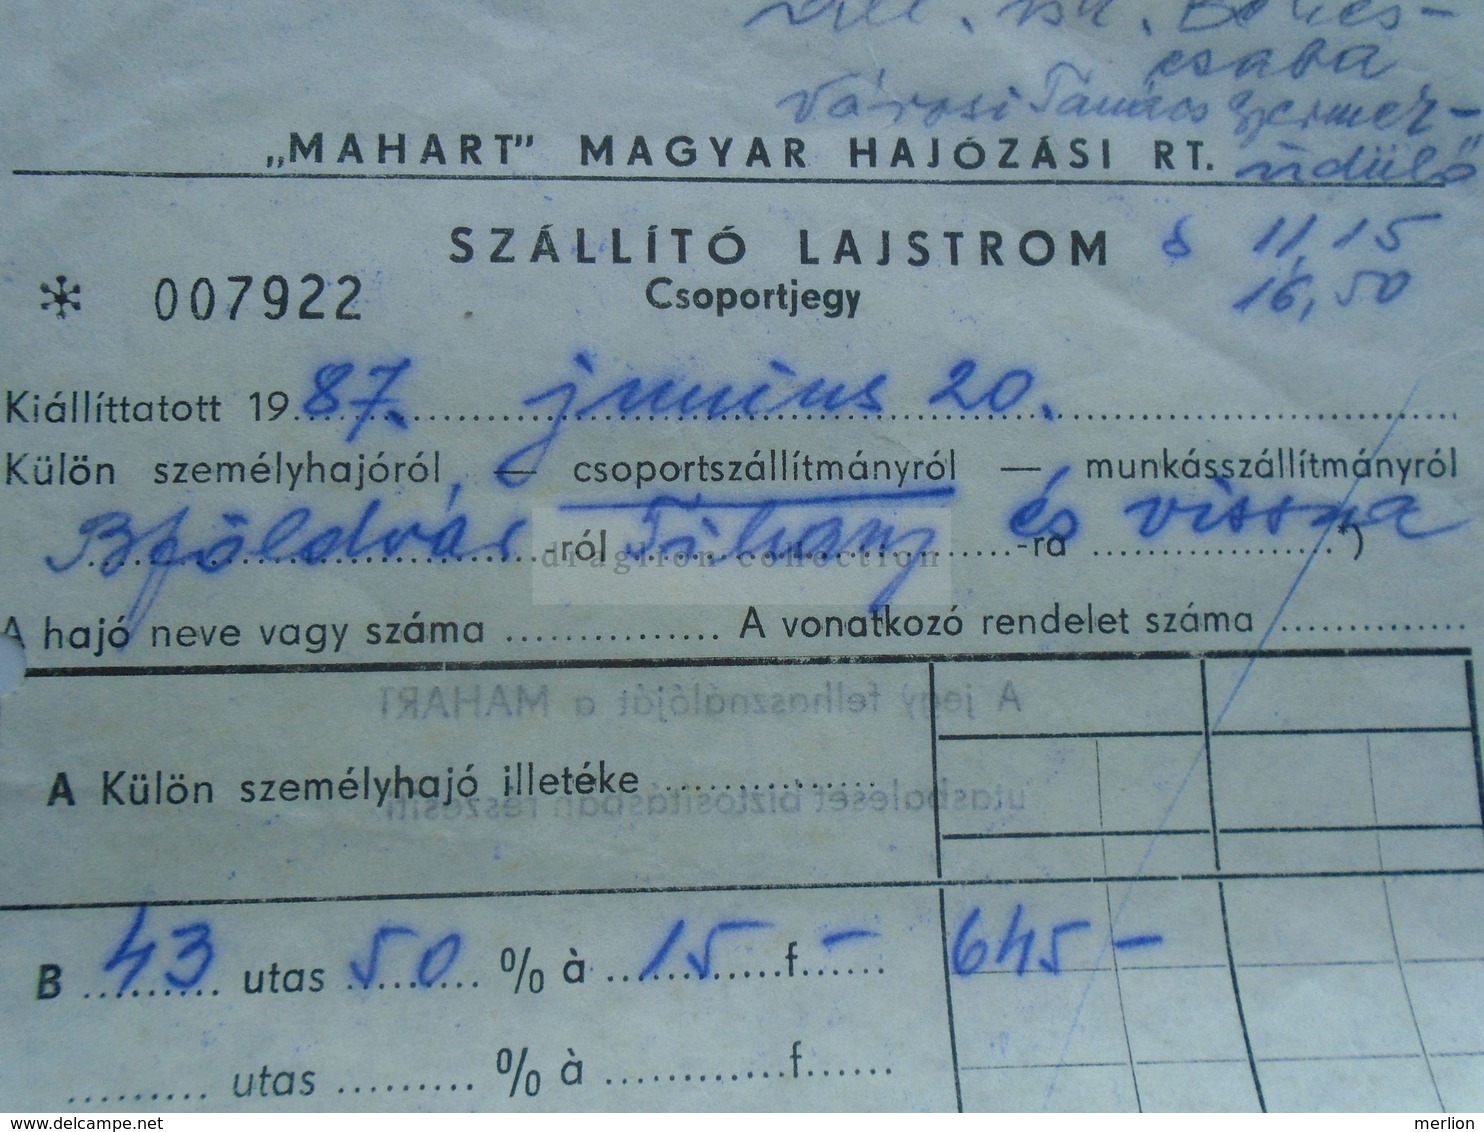 csaba
Városi Tanács gyermek-
üdülő
„MAHART” MAGYAR HAJÓZÁSI RT.
SZÁLLÍTÓ LAJSTROM
11,15
* 007922
Csoportjegy
16,50
Kiállíttatott 1987. június 20.
Külön személyhajóról, — csoportszállítmányról — munkásszállítmányról
Bföldvár -ról Tihany -ra és vissza *)
draglion collection
A hajó neve vagy száma ............... A vonatkozó rendelet száma ...............
A jegy felhasználóját a MAHART
A Külön személyhajó illetéke ...............
utasbaleset biztosításban részesíti
B 43 utas 50 % à 15 f. – 645 –
......... utas ......... % à ............f......
www.delcampe.net
merlion